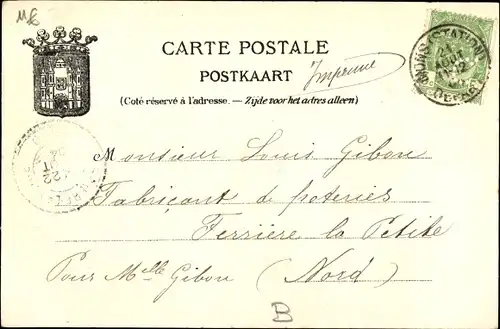 CARTE POSTALE
POSTKAART
Imprimé
(Coté réservé à l'adresse. — Zijde voor het adres alleen)
STATION
21
AOUT
Monsieur Louis Gibou
Fabriçant de poteries
Ferrière la Petite
Pour Melle Gibou (Nord)
B